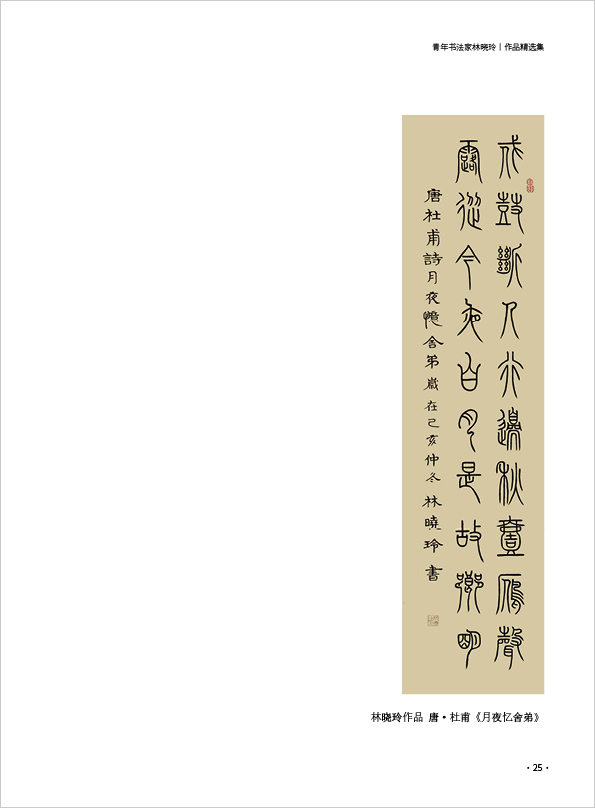 青年书法家林晓玲｜作品精选集
戍鼓斷人行邊秋壹雁聲
露從今夜白月是故鄉明
唐杜甫詩月夜憶舍弟歲在己亥仲冬林曉玲書
林晓玲作品 唐·杜甫《月夜忆舍弟》
·25·